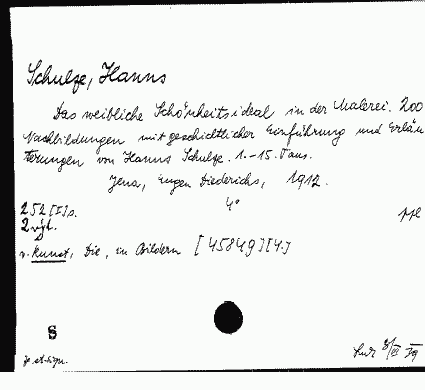 Schulze, Hanns
Das weibliche Schönheitsideal in der Malerei. 200
Nachbildungen mit geschichtlicher Einführung und Erläu
terungen von Hanns Schulze. 1.-15. Taus.
Jena, Eugen Diederichs, 1912.
252 [I] s. 4° ppl
2 vgt.
v. Kunst, Die, in Bildern [45849][4.]
S